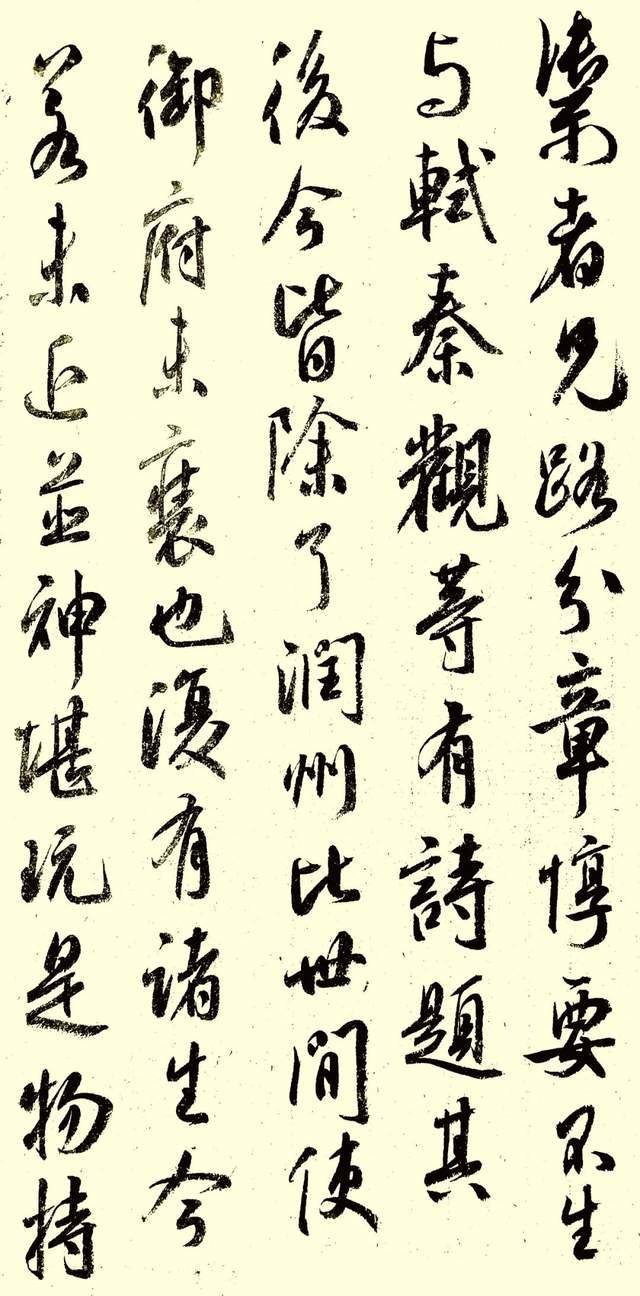 濼者兄路分章惇要不生
与軾秦觀等有詩題其
後今皆除了润州比世間使
御府未裹也復有諸生今
若未近並神堪玩是物持